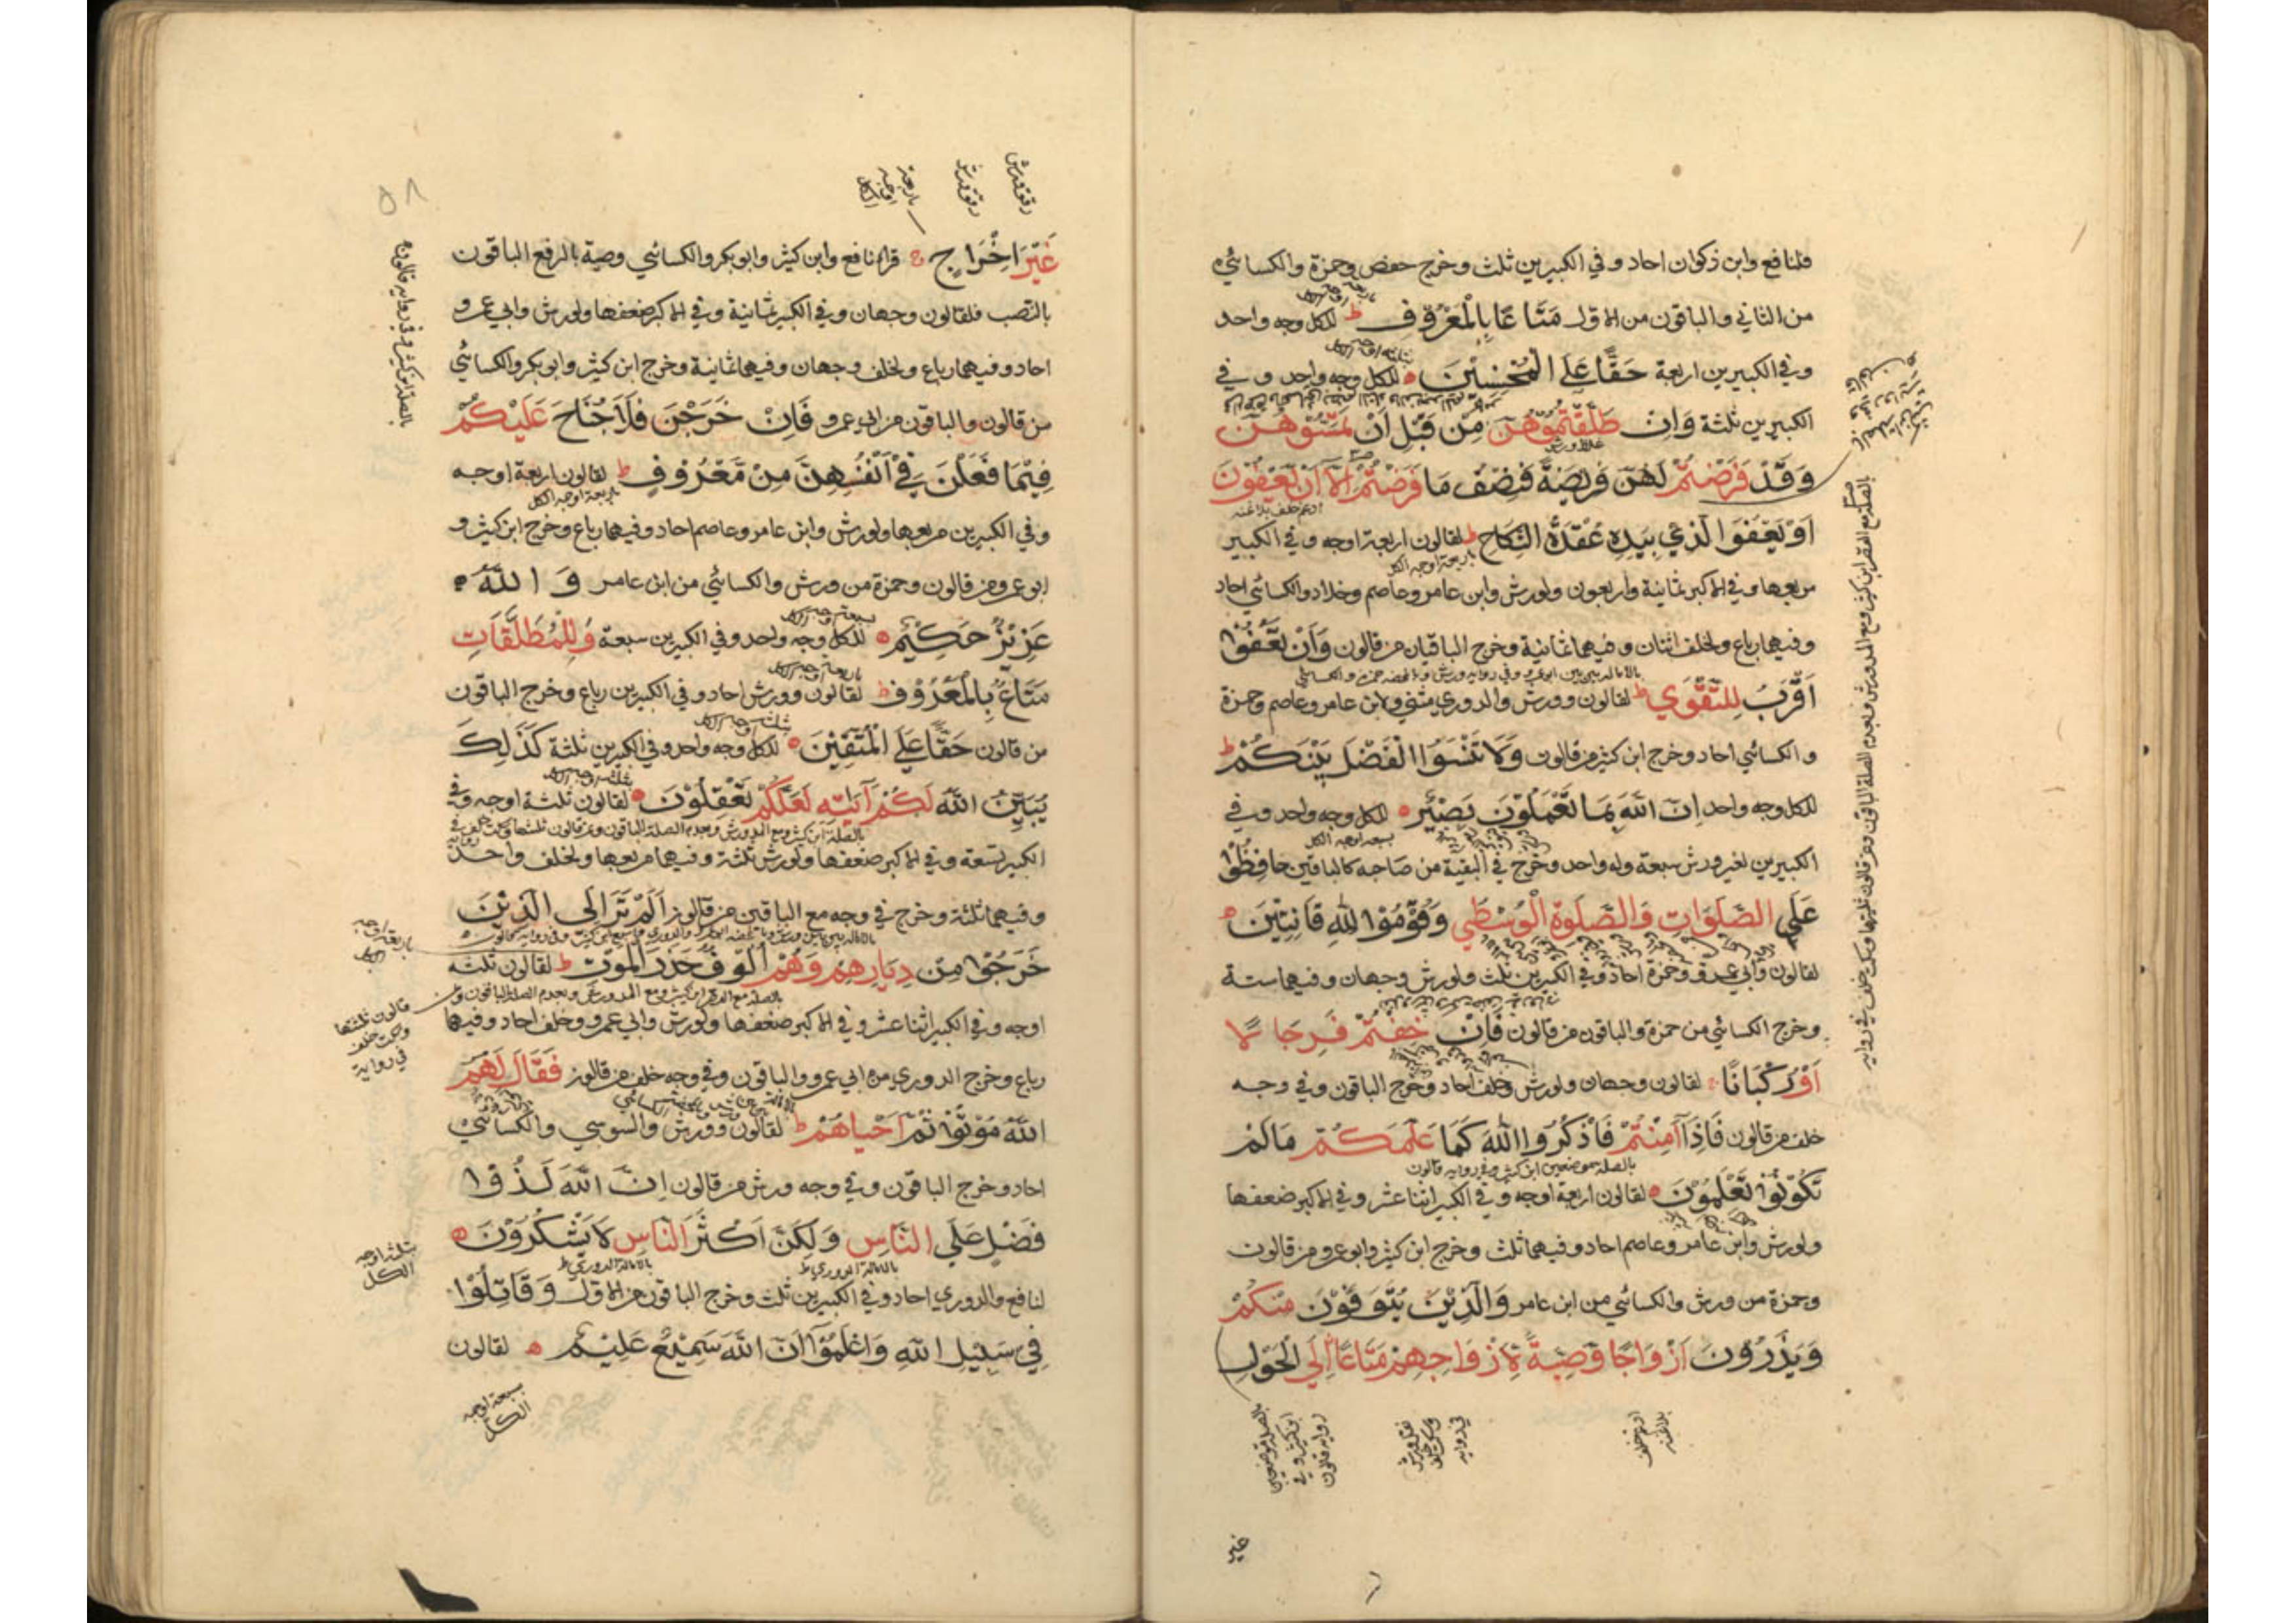 فلنافع وابن ذكوان احاد وفي الكبيرين ثلث وخرج حفص وحمزة والكسائي
من الثاني والباقون من الاول مَتَاعًا بِالْمَعْرُوفِ ط للكل وجه واحد
وفي الكبيرين اربعة حَقًّا عَلَى الْمُحْسِنِينَ للكل وجه واحد وفي
الكبيرين ثلثة وَاِنْ طَلَّقْتُمُوهُنَّ مِنْ قَبْلِ اَنْ تَمَسُّوهُنَّ
وَقَدْ فَرَضْتُمْ لَهُنَّ فَرِيضَةً فَنِصْفُ مَا فَرَضْتُمْ اِلَّا اَنْ يَعْفُونَ
ادغم خلف بلاغنه
اَوْ يَعْفُوَا الَّذِي بِيَدِهِ عُقْدَةُ النِّكَاحِ ط لقالون اربعة اوجه وفي الكبير
اربعة اوجه الكل
مربعها وفي الاكبر ثمانية واربعون ولورش وابن عامر وعاصم وخلاد والكسائي احاد
وفيهما رباع ولخلف اثنان وفيهما ثمانية وخرج الباقيان من قالون وَاَنْ تَعْفُوا
اَقْرَبُ لِلتَّقْوَى ط لقالون وورش والدوري مثنى ولابن عامر وعاصم وحمزة
والكسائي احاد وخرج ابن كثير من قالون وَلَا تَنْسَوُا الْفَضْلَ بَيْنَكُمْ ط
للكل وجه واحد اِنَّ اللّٰهَ بِمَا تَعْمَلُونَ بَصِيرٌ للكل وجه واحد وفي
سبعة اوجه الكل
الكبيرين لغير ورش سبعة وله واحد وخرج في البقية من صاحبه كالباقين حَافِظُوا
عَلَى الصَّلَوَاتِ وَالصَّلَوةِ الْوُسْطَى وَقُومُوا لِلّٰهِ قَانِتِينَ
لقالون وابي عمرو وحمزة احاد وفي الكبيرين ثلث ولورش وجهان وفيهما ستة
وخرج الكسائي من حمزة والباقون من قالون فَاِنْ خِفْتُمْ فَرِجَالًا
اَوْ رُكْبَانًا لقالون وجهان ولورش وخلف احاد وخرج الباقون وفي وجه
خلف من قالون فَاِذَا اَمِنْتُمْ فَاذْكُرُوا اللّٰهَ كَمَا عَلَّمَكُمْ مَا لَمْ
بالصلة بموضعين ابن كثير وفي رواية قالون
تَكُونُوا تَعْلَمُونَ لقالون اربعة اوجه وفي الكبير اثنا عشر وفي الاكبر ضعفها
ولورش وابن عامر وعاصم احاد وفيهما ثلث وخرج ابن كثير وابوعمرو من قالون
وحمزة من ورش والكسائي من ابن عامر وَالَّذِينَ يُتَوَفَّوْنَ مِنْكُمْ
وَيَذَرُونَ اَزْوَاجًا وَصِيَّةً لِاَزْوَاجِهِمْ مَتَاعًا اِلَى الْحَوْلِ
ادغم خلف
بلاغنه
في رواية
غير
رقق ورش
رقق ورش
اربعة
اوجه
الكل
٥٨
غَيْرَ اِخْرَاجٍ قرا نافع وابن كثير وابوبكر والكسائي وصية بالرفع الباقون
بالنصب فلقالون وجهان وفي الكبير ثمانية وفي الاكبر ضعفها ولورش وابي عمرو
احاد وفيهما رباع ولخلف وجهان وفيهما ثمانية وخرج ابن كثير وابوبكر والكسائي
من قالون والباقون من ابي عمرو فَاِنْ خَرَجْنَ فَلَا جُنَاحَ عَلَيْكُمْ
فِيمَا فَعَلْنَ فِي اَنْفُسِهِنَّ مِنْ مَعْرُوفٍ ط لقالون اربعة اوجه
اربعة اوجه الكل
وفي الكبيرين مربعها ولورش وابن عامر وعاصم احاد وفيهما رباع وخرج ابن كثير و
ابوعمرو من قالون وحمزة من ورش والكسائي من ابن عامر وَاللّٰهُ
عَزِيزٌ حَكِيمٌ للكل وجه واحد وفي الكبيرين سبعة وَلِلْمُطَلَّقَاتِ
مَتَاعٌ بِالْمَعْرُوفِ ط لقالون وورش احاد وفي الكبيرين رباع وخرج الباقون
من قالون حَقًّا عَلَى الْمُتَّقِينَ للكل وجه واحد وفي الكبيرين ثلثة كَذٰلِكَ
يُبَيِّنُ اللّٰهُ لَكُمْ اٰيَاتِهِ لَعَلَّكُمْ تَعْقِلُونَ لقالون ثلثة اوجه وفي
الكبير تسعة وفي الاكبر ضعفها ولورش ثلثة وفيهما مربعها ولخلف واحد
وفيهما ثلثة وخرج في وجه مع الباقين من قالون اَلَمْ تَرَ اِلَى الَّذِينَ
خَرَجُوا مِنْ دِيَارِهِمْ وَهُمْ اُلُوفٌ حَذَرَ الْمَوْتِ ط لقالون ثلثة
اوجه وفي الكبير اثنا عشر وفي الاكبر ضعفها ولورش وابي عمرو وخلف احاد وفيهما
رباع وخرج الدوري من ابي عمرو والباقون وفي وجه خلف من قالون فَقَالَ لَهُمُ
اللّٰهُ مُوتُوا ثُمَّ اَحْيَاهُمْ ط لقالون وورش والسوسي والكسائي
احاد وخرج الباقون وفي وجه ورش من قالون اِنَّ اللّٰهَ لَذُو
فَضْلٍ عَلَى النَّاسِ وَلٰكِنَّ اَكْثَرَ النَّاسِ لَا يَشْكُرُونَ
بالامالة الدوري ط بالامالة الدوري ط
لنافع والدوري احاد وفي الكبيرين ثلث وخرج الباقون من الاول وَقَاتِلُوا
فِي سَبِيلِ اللّٰهِ وَاعْلَمُوا اَنَّ اللّٰهَ سَمِيعٌ عَلِيمٌ لقالون
بالصلة ابن كثير وفي رواية قالون
اربعة اوجه
الكل
قالون ثلثتها
وسكت خلف
في رواية
ثلثة اوجه
الكل
سبعة اوجه
الكل